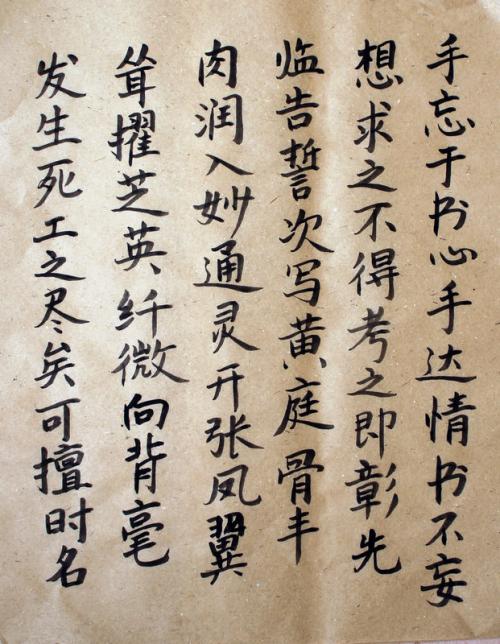 手忘于书心手达情书不妄
想求之不得考之即彰先
临告誓次写黄庭骨丰
肉润入妙通灵开张凤翼
耸擢芝英纤微向背毫
发生死工之尽矣可擅时名